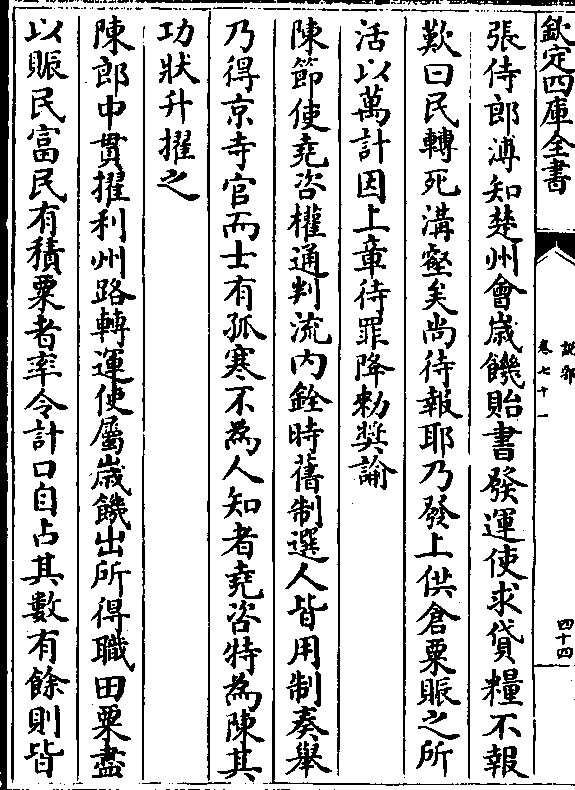 欽定四庫全書
說郛
卷七十一
四十四
張侍郎溥知楚州會歲饑貽書發運使求貸糧不報
歎曰民轉死溝壑矣尚待報耶乃發上供倉粟賑之所
活以萬計因上章待罪降勅奬諭
陳節使堯咨權通判流内銓時舊制選人皆用制奏舉
乃得京寺官而士有孤寒不為人知者堯咨特為陳其
功狀升擢之
陳郎中貫擢利州路轉運使屬歲饑出所得職田粟盡
以賑民富民有積粟者率令計口自占其數有餘則皆